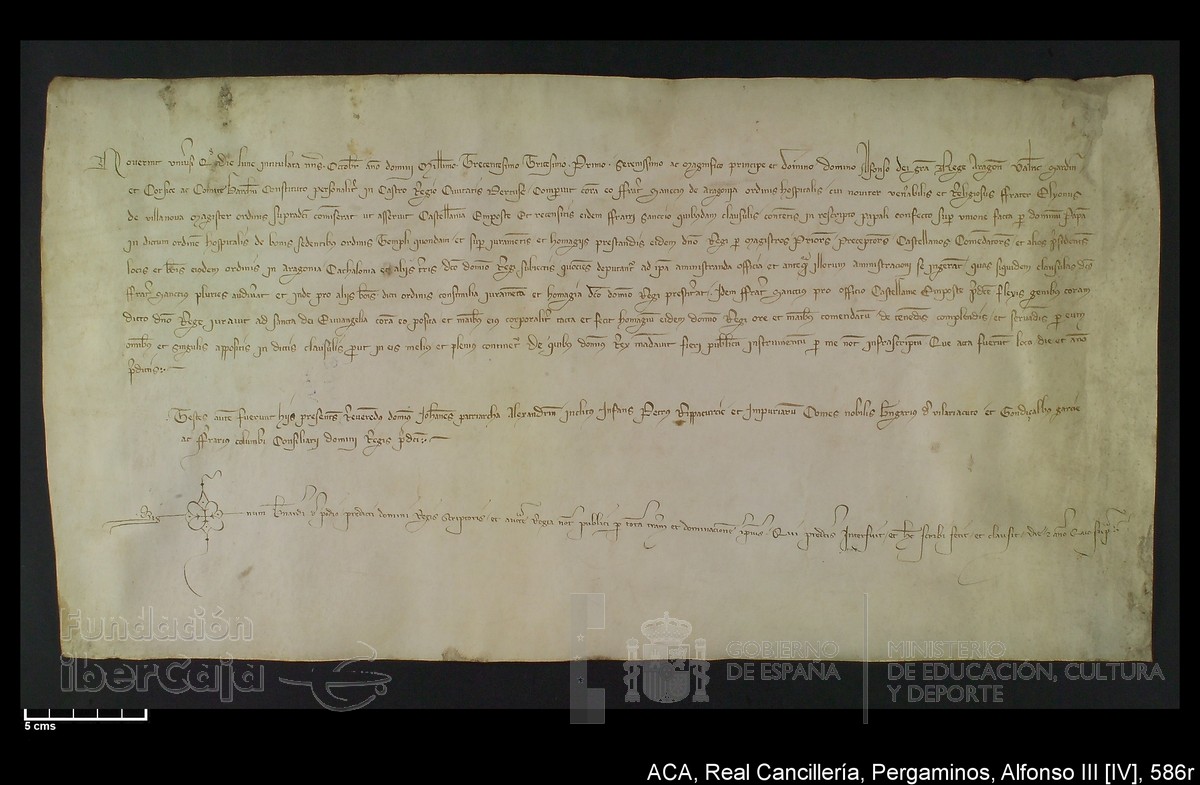 Noverint universi Qd die lune intitulata nonas Octobr anno domini Millimo Trecentesimo Tricesimo Primo. Serenissimo ac magnifico principe et domino domino Alfonso dei gra Rege Aragon Valnc Sardin
et Corsice ac Comite Barchn Constituto personalit in Castro Regio Civitatis Dertuse Comparuit cora eo ffrat Sancius de aragonia ordinis hospitalis cui noviter venabilis et Religiosus ffrater Elyonus
de villanova Magister ordinis supradci comiserat ut asseruit Castellania Emposte Et recensitis eidem ffratri Sanctio quibusdam clausulis contentis in rescripto papali confecto sup unione facta p dominum Papa
in dictum ordine hospitalis de bonis sedentibz ordinis Templi quondam et sup iuramentis et homagijs prestandis eidem dno Regi p magistros Priores Preceptores Castellanos Comendatores et alios psidentes
locis et bonis eiusdem ordinis in Aragonia Cathalonia et alijs terris dco domino Regi subiectis quociens deputant ad ipa aministranda officia et anteq illorum aministracioni se ingerat quas siquidem clausulas dcus
ffrat Sancius pluries audiverat et inde pro alijs bonis dicti ordinis consimilia iuramenta et homagia dco domino Regi prestiterat. Idem ffrat Sancius pro officio Castellanie Emposte pdce flexis genibus coram
dicto dno Rege iuravit ad sancta dei Euvangelia cora eo posita et manibz eius corporalit tacta et fecit homagiu eidem domino Regi ore et manibz comendatu de tenedis complendis et servadis p eum
omibz et singulis appositis in dictis clausulis prout in eis melius et plenius continet De quibz dominus Rex madavit fieri publicu instrumentu p me not infrascriptu Que acta fuerut loco die et anno
pdictis
Testes aute fuerunt hijs presentes Reveredo domino Johanes patriarcha Alexandrin inclitus Infans Petrus Rippacurcie et Impuriaru Comes nobilis Bngarius d vilariacuto et Gondiçalbus garcie
ac ffrarius columbi Consiliarij domini Regis pdci
Sig num Bnardi d podio predicti domini Regis scriptoris et auctte Regia not publici p tota tram et dominacione ipsius Qui predcis interfuit et hec scribi fecit et clausit die et anno quo sup
5 cms
Fundación iberCaja
GOBIERNO DE ESPAÑA
MINISTERIO DE EDUCACIÓN, CULTURA Y DEPORTE
ACA, Real Cancillería, Pergaminos, Alfonso III [IV], 586r